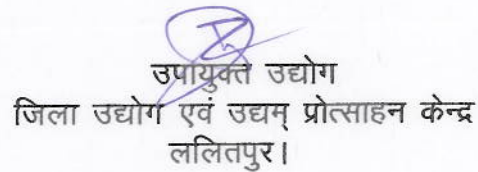 उपायुक्त उद्योग
जिला उद्योग एवं उद्यम् प्रोत्साहन केन्द्र
ललितपुर।